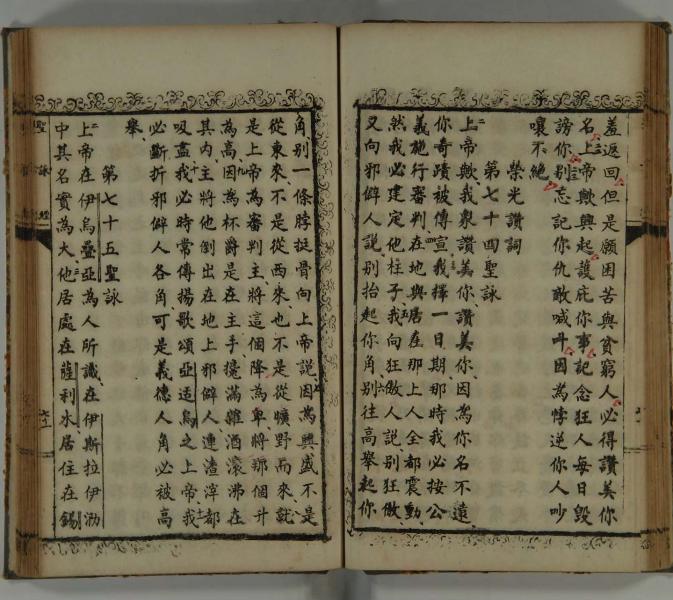 羞返回但是願困苦與貧窮人必得讚美你
名上帝歟興起護庇你事記念狂人每日毀
謗你別忘記你仇敵喊斗因為悖逆你人吵
嚷不絶
榮光讚詞
第七十四聖詠
上帝歟我衆讚美你讚美你因為你名不遠
你奇蹟被傳宣我擇一日期那時我必按公
義施行審判在地與居在那上人全都震動
然我必建定他柱子我向狂傲人說別狂傲
又向邪僻人說別抬起你角別往高舉起你
角別一條脖挺骨向上帝說因為興盛不是
從東來不是從西來也不是從曠野而來就
是上帝為審判主將這個降為卑將那個升
為高因為杯爵是在主手攙滿雜酒滾沸在
其内主將他倒出在地上邪僻人連渣滓都
吸盡我必時常傳揚歌頌亞适烏之上帝我
必斷折邪僻人各角可是義德人角必被高
舉
第七十五聖詠
上帝在伊烏疊亞為人所識在伊斯拉伊泐
中其名實為大他居處在薩利木居住在錫
聖詠經